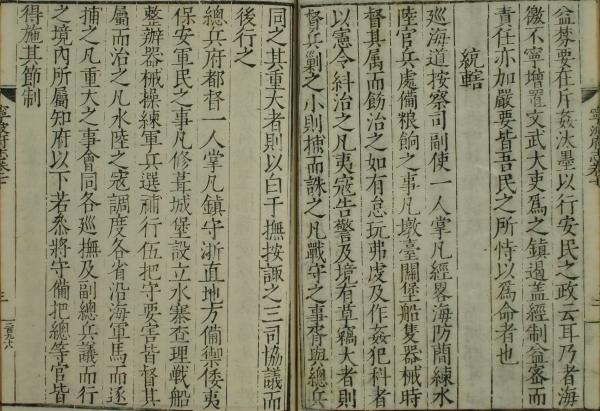 益楙要在斥姦汰墨以行安民之政云耳乃者海
徼不寧增置文武大吏爲之鎮遏盖經制益密而
責任亦加嚴要皆吾民之所恃以爲命者也
統轄
廵海道按察司副使一人掌凡經畧海防蕳練水
陸官兵處備粮餉之事凡墩臺關堡船隻器械時
督其属而飭治之如有怠玩弗虔及作姦犯科者
以憲令糾治之凡夷宼告警及境有草竊大者則
督兵剿之小則捕而誅之凡戰守之事胥與總兵
同之其重大者則以白于撫按諏之三司協議而
後行之
總兵府都督一人掌凡鎮守浙直地方備禦倭夷
保安軍民之事凡修葺城堡設立水寨查理戰船
整辦器械操練軍兵選補行伍把守要害皆督其
屬而治之凡水陸之宼調度各省沿海軍馬而逐
捕之凡重大之事會同各廵撫及副總兵議而行
之境内所屬知府以下若叅將守備把總等官皆
得施其節制
寧波府志卷七
三